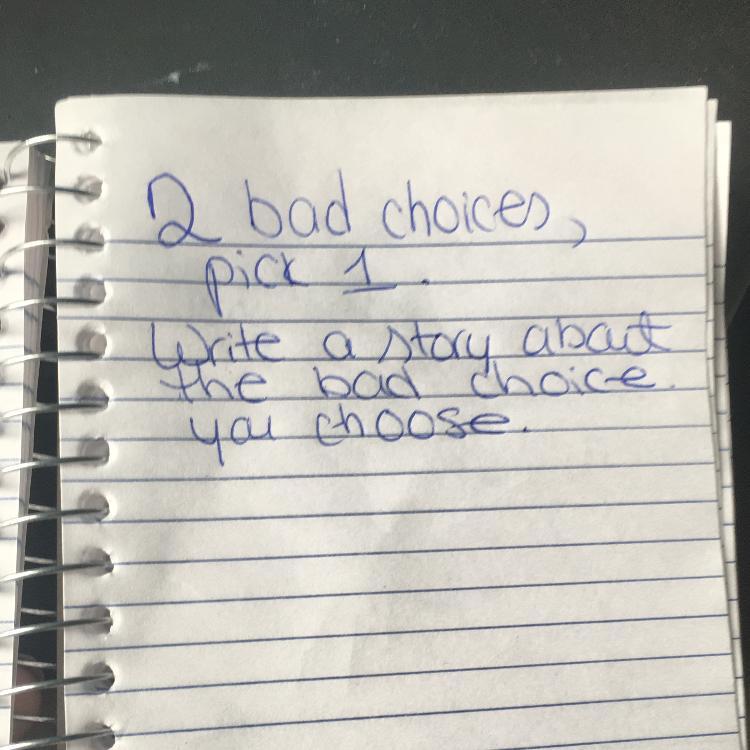 2 bad choices,
pick 1.
Write a story about
the bad choice
you choose.